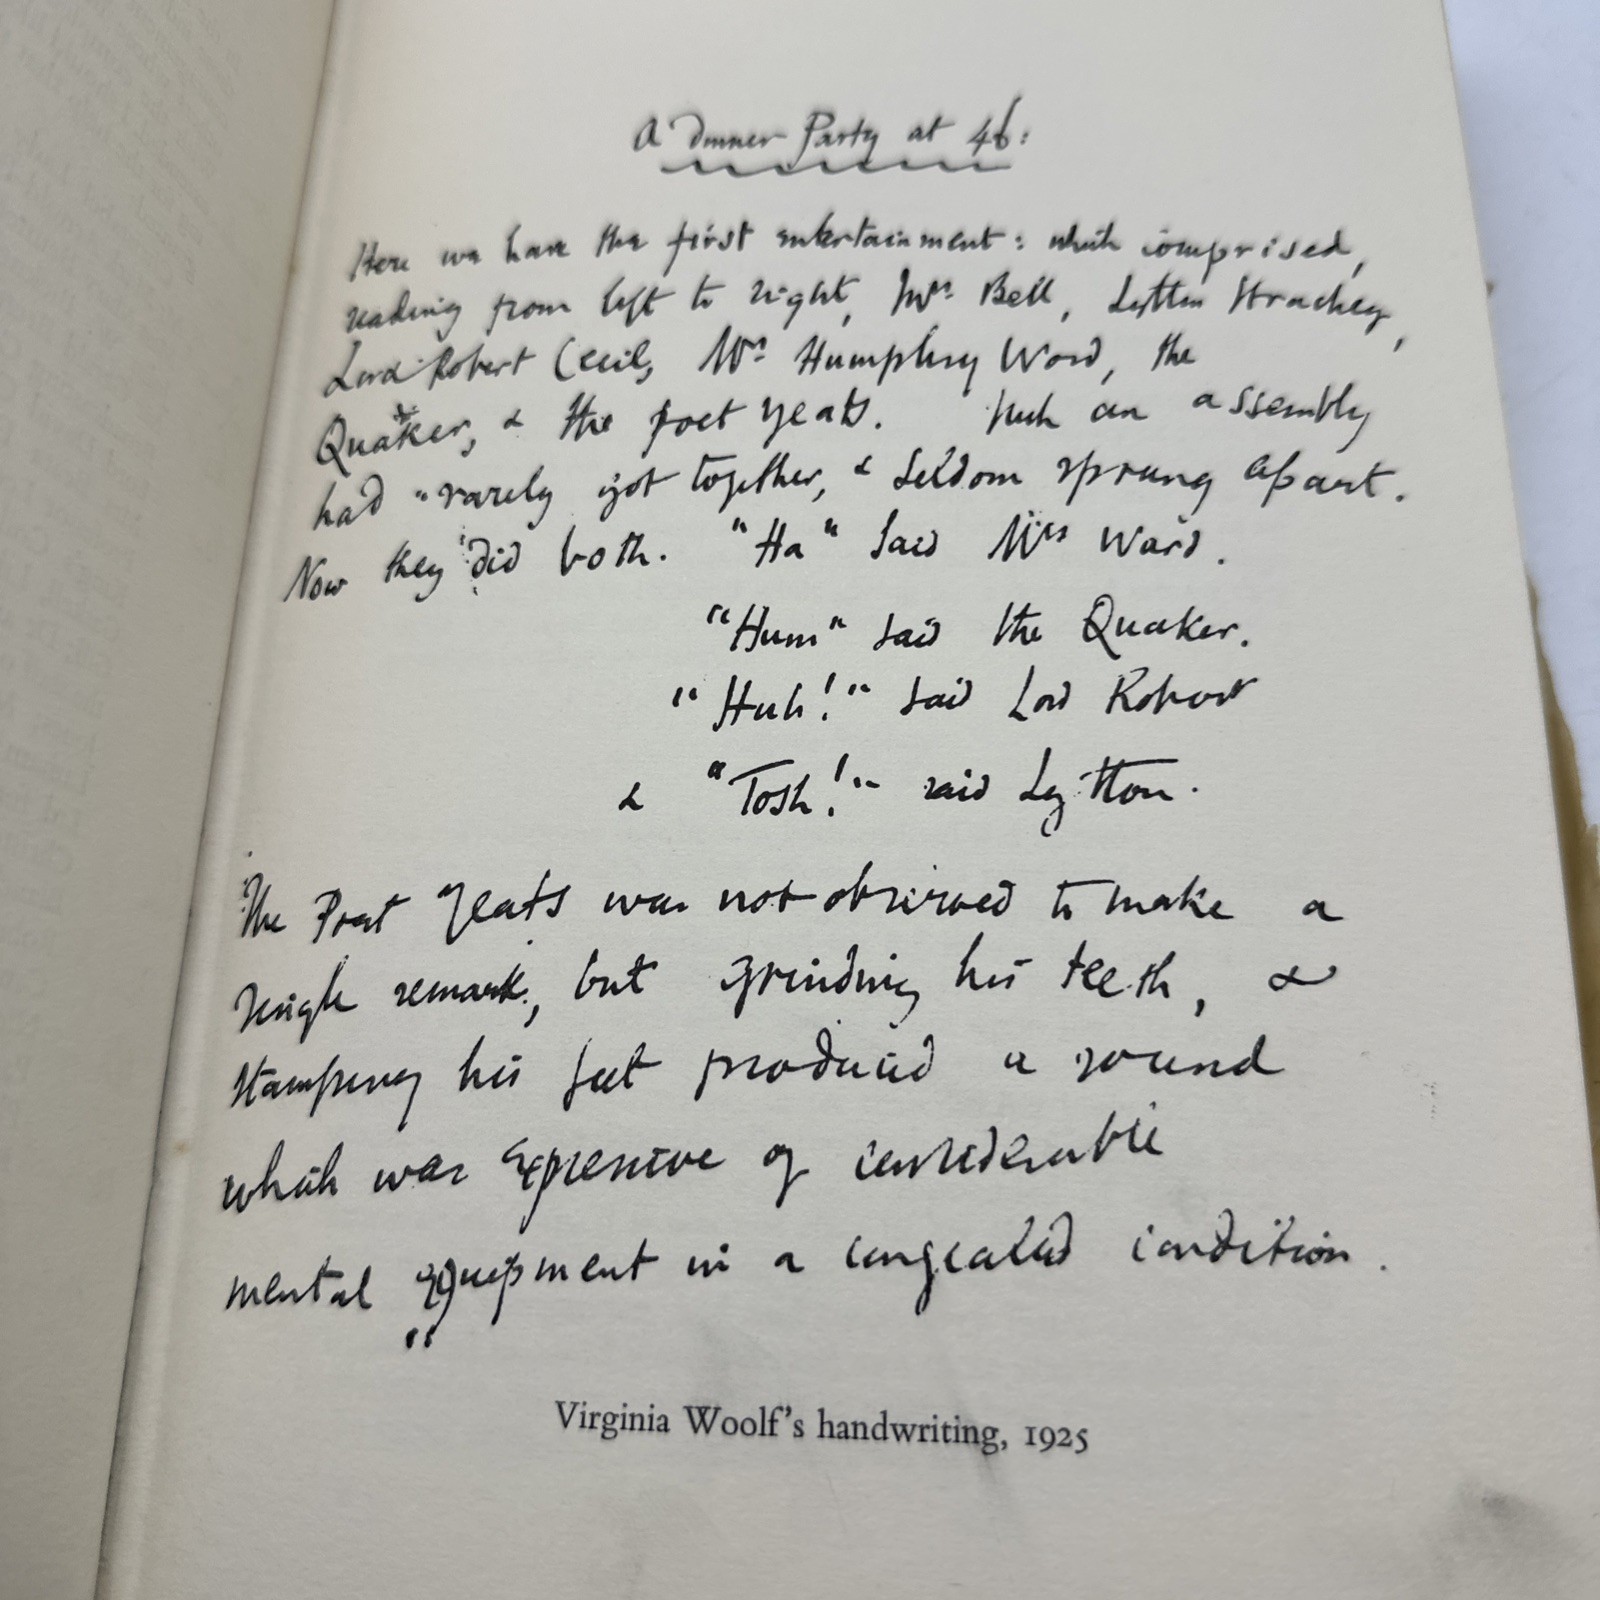 A Dinner Party at 46:
Here we have the first entertainment: which comprised,
reading from left to right, Mrs. Bell, Lytton Strachey,
Lord Robert Cecil, Mrs. Humphry Ward, the
Quaker, & the poet Yeats. Such an assembly
had rarely got together, & seldom sprung apart.
Now they did both. "Ha" said Mrs Ward.
"Hum" said the Quaker.
"Huh!" said Lord Robert
& "Tosh!" said Lytton.
The Poet Yeats was not observed to make a
single remark, but grinding his teeth, &
stamping his feet produced a sound
which was expressive of considerable
mental equipment in a congealed condition.
Virginia Woolf's handwriting, 1925